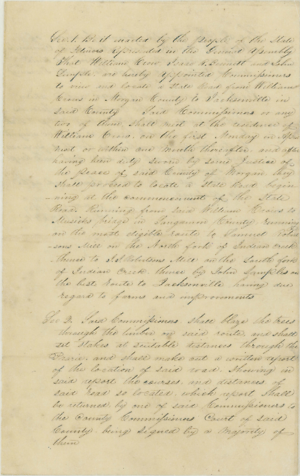 Sec 1. Be it enacted by the people of the State
of Illinois represented in the General Assembly
That William Crow, Isaac R. Bennett and John
be hereby appointed Commissioners
to view and locate a State Road from William
Crows in Morgan County to Jacksonville in
said County. Said Commissioners or any
two of them shall meet at the residence of
William Crows, on the first Monday in
next or within one month thereafter, and after
having been duly sworn by some Justice of
the peace, of said County of Morgan they
shall proceed to locate a State Road begin
ning at the commencement of the State
Road running from said William Crows to
Musick's bridge in Sangamon County, running
on the most eligible route by
Mill on the North fork of Indian creek
thence to Mill on the South fork
of Indian Creek thence by John on
the best route to Jacksonville, having due
regard to farms and improvements
Sec 2. Said Commissioners shall blaze the trees
through the timber on said route and shall
set stakes at suitable distances through the
Prairie and shall make out a written report
of the location of said road showing in
said report the courses and distances of
said road so located, which report shall
be returned by one of said Commissioners to
the County Commissioners Court of said
County being signed by a majority of
them